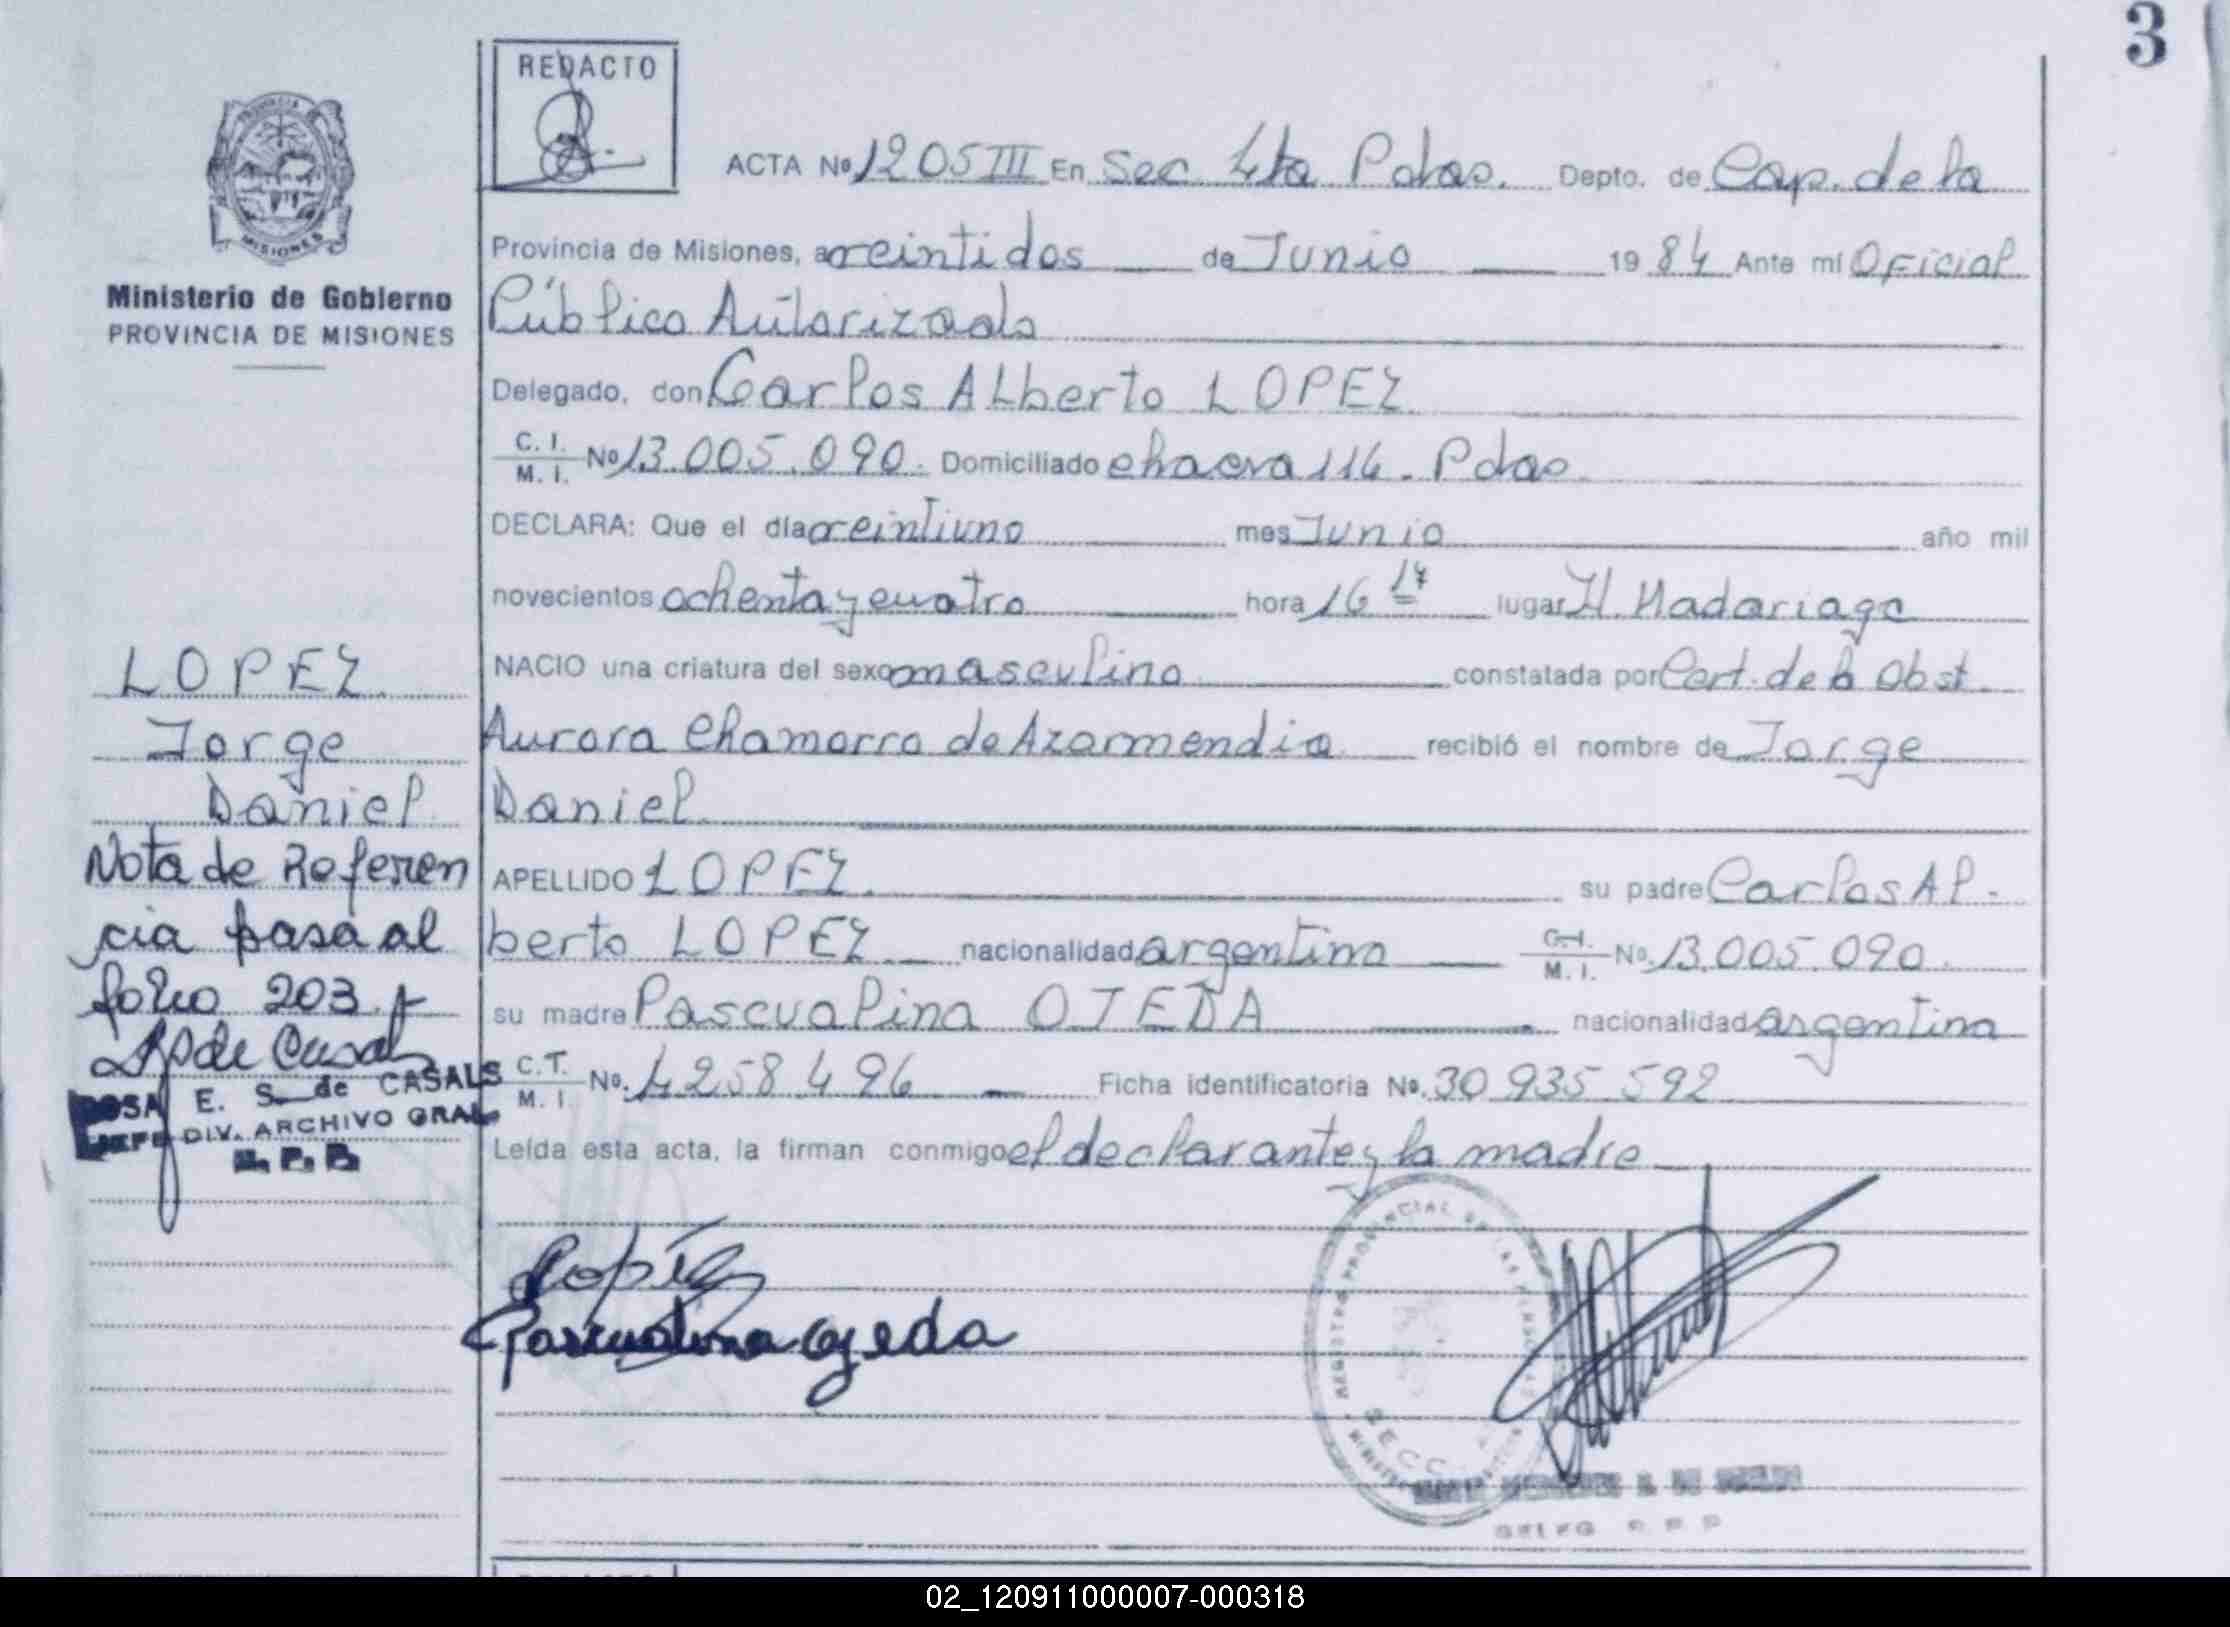 3
REDACTO
PROVINCIA
MISIONES
Ministerio de Gobierno
PROVINCIA DE MISIONES
ACTA Nº 1205 III En Sec 4ta Pdas. Depto. de Cap. de la
Provincia de Misiones, a veintidos de Junio 1984 Ante mí Oficial
Público Autorizado
Delegado, don Carlos Alberto LOPEZ
C. I. M. I. Nº 13.005.090. Domiciliado chacra 114. Pdas.
DECLARA: Que el día veintiuno mes Junio año mil
novecientos ochenta y cuatro hora 16 17 lugar H. Madariaga
NACIO una criatura del sexo masculino constatada por Cert. de la Obst.
Aurora Chamorro de Azarmendia recibió el nombre de Jorge
Daniel
APELLIDO LOPEZ. su padre Carlos Al-
berto LOPEZ nacionalidad argentino C.I. M. I. Nº 13.005.090.
su madre Pascualina OJEDA nacionalidad argentina
C.T. M. I. Nº. 4258496 Ficha identificatoria Nº. 30 935 592
Leída esta acta, la firman conmigo el declarante y la madre
LOPEZ
Jorge
Daniel
Nota de Referen
cia pasa al
folio 203.
de Casals
ROSA E. S. de CASALS
JEFE DIV. ARCHIVO GRAL
R. P. P.
Lopez
Pascualina Ojeda
REGISTRO PROVINCIAL DE LAS PERSONAS
SECC
02_120911000007-000318